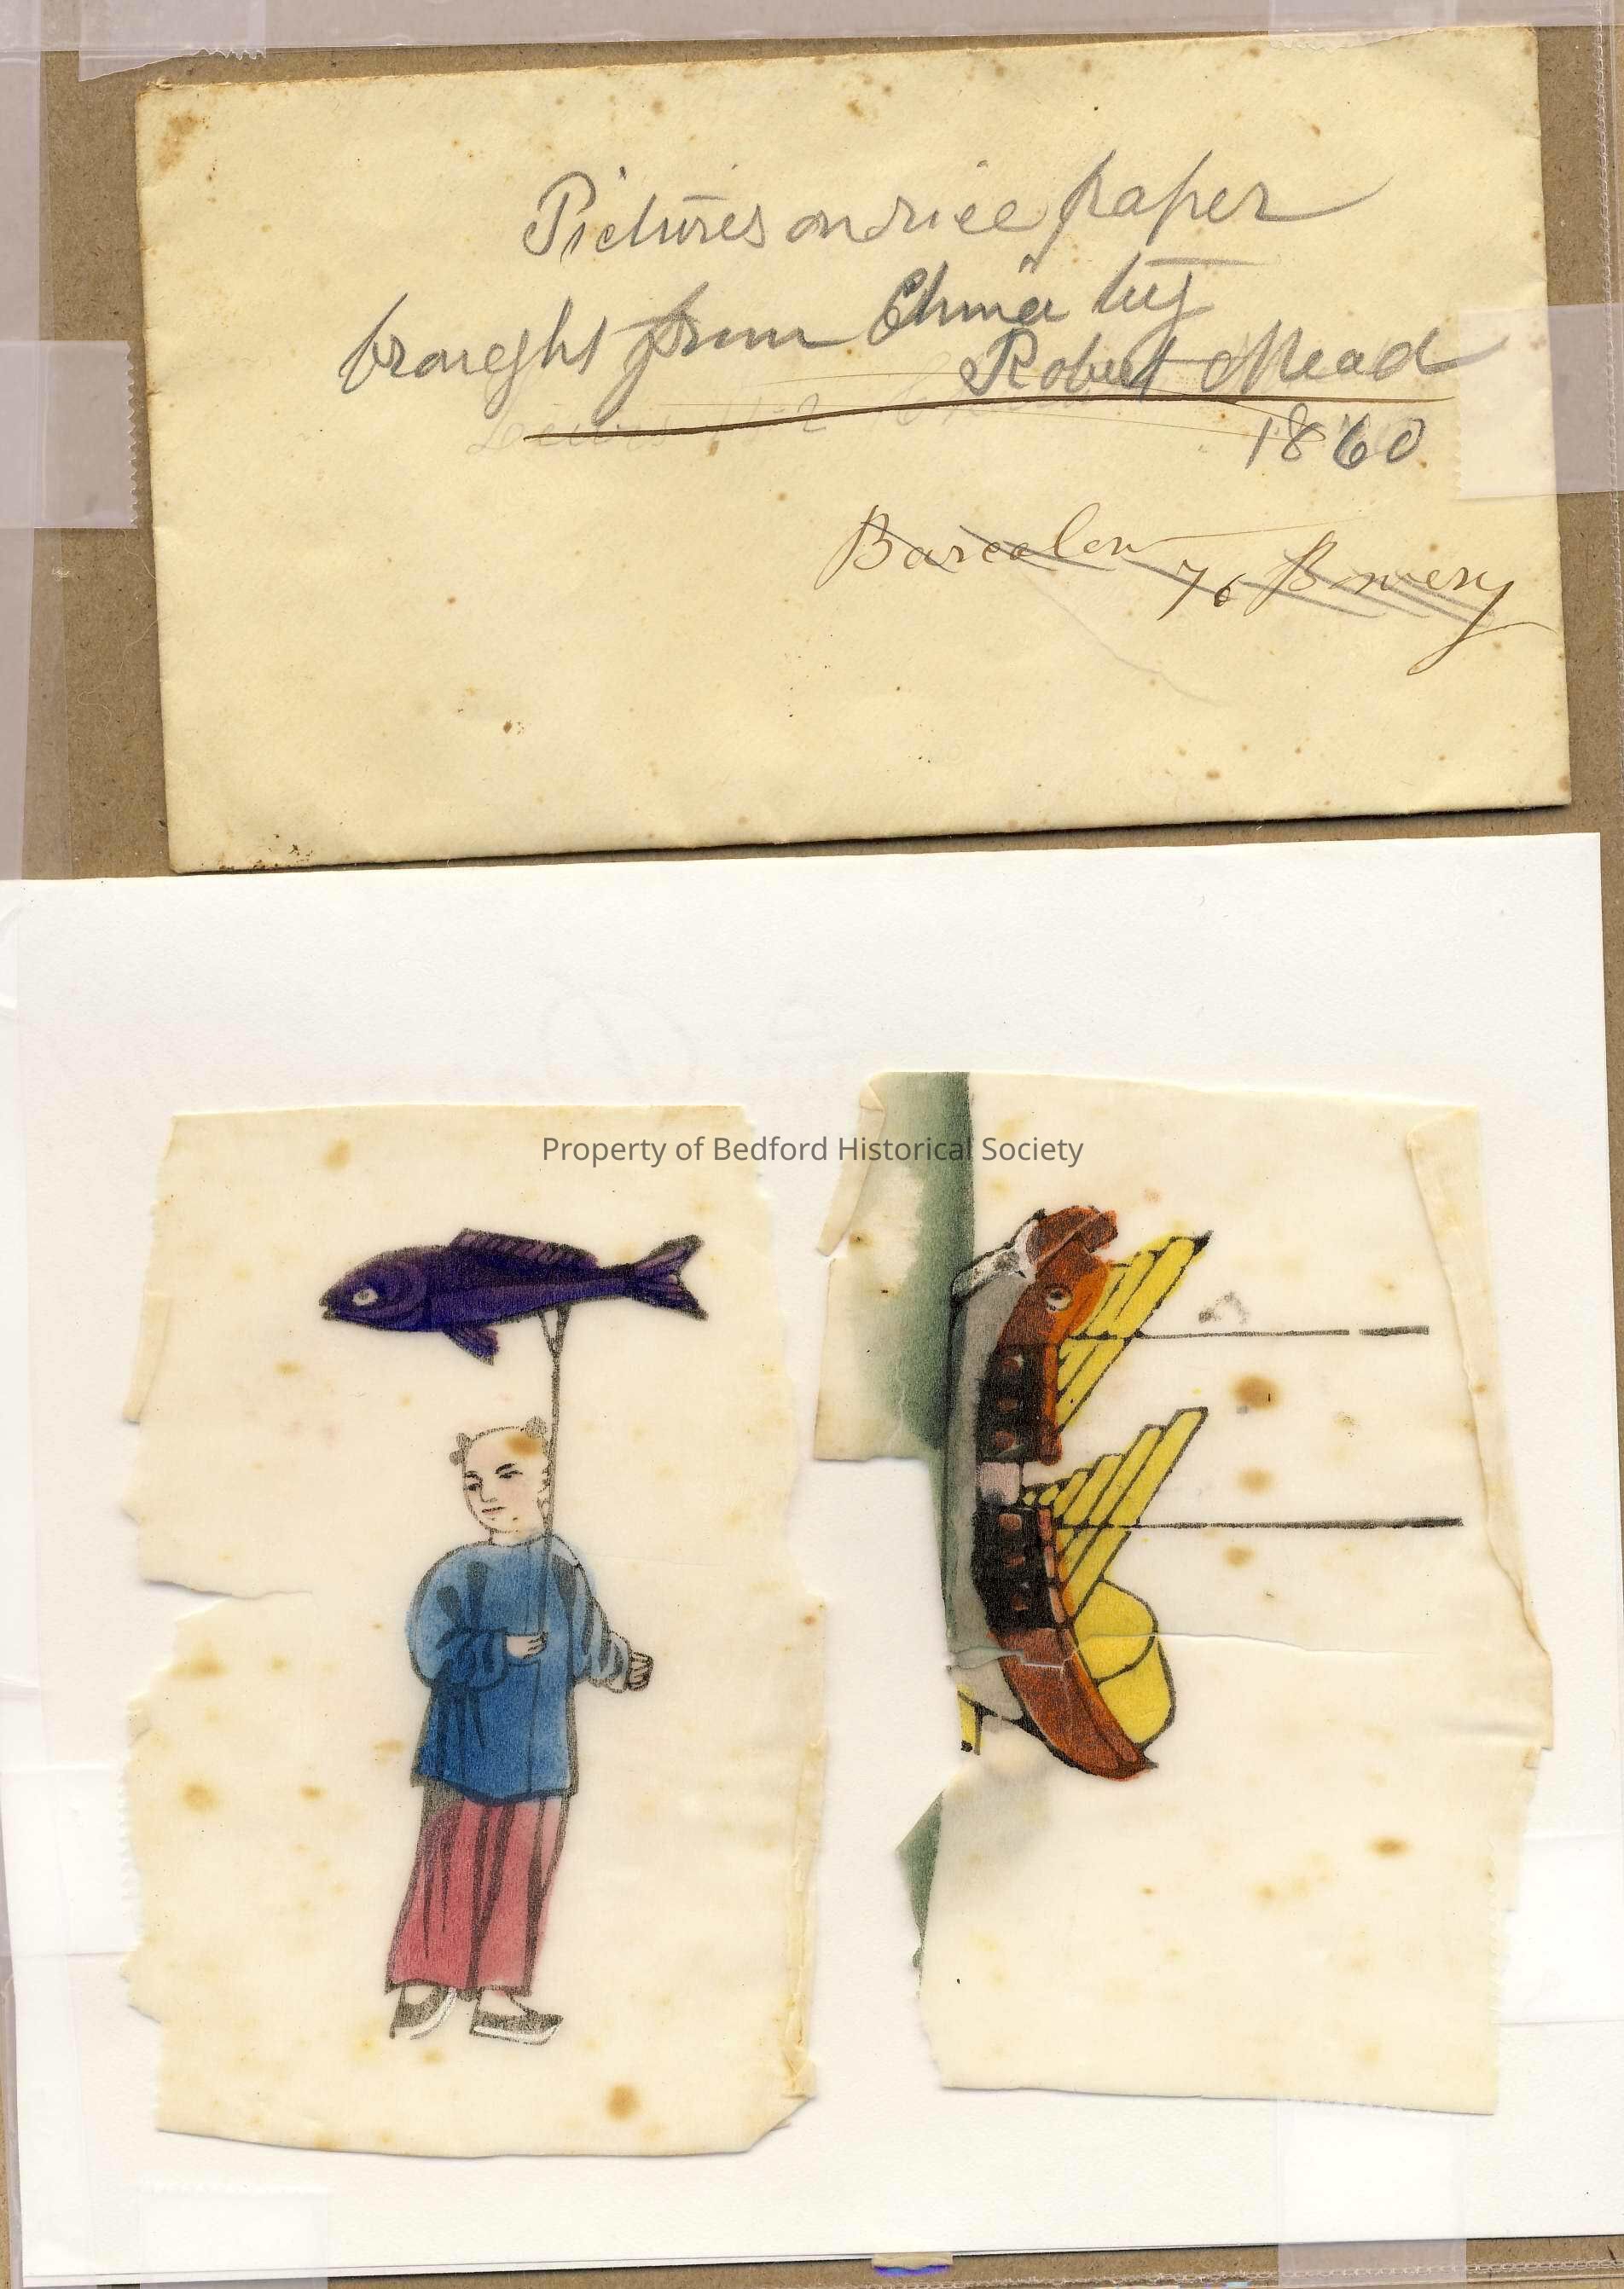 Pictures on rice paper
brought from China by
Robert Mead
1860
76 Bowery
Property of Bedford Historical Society